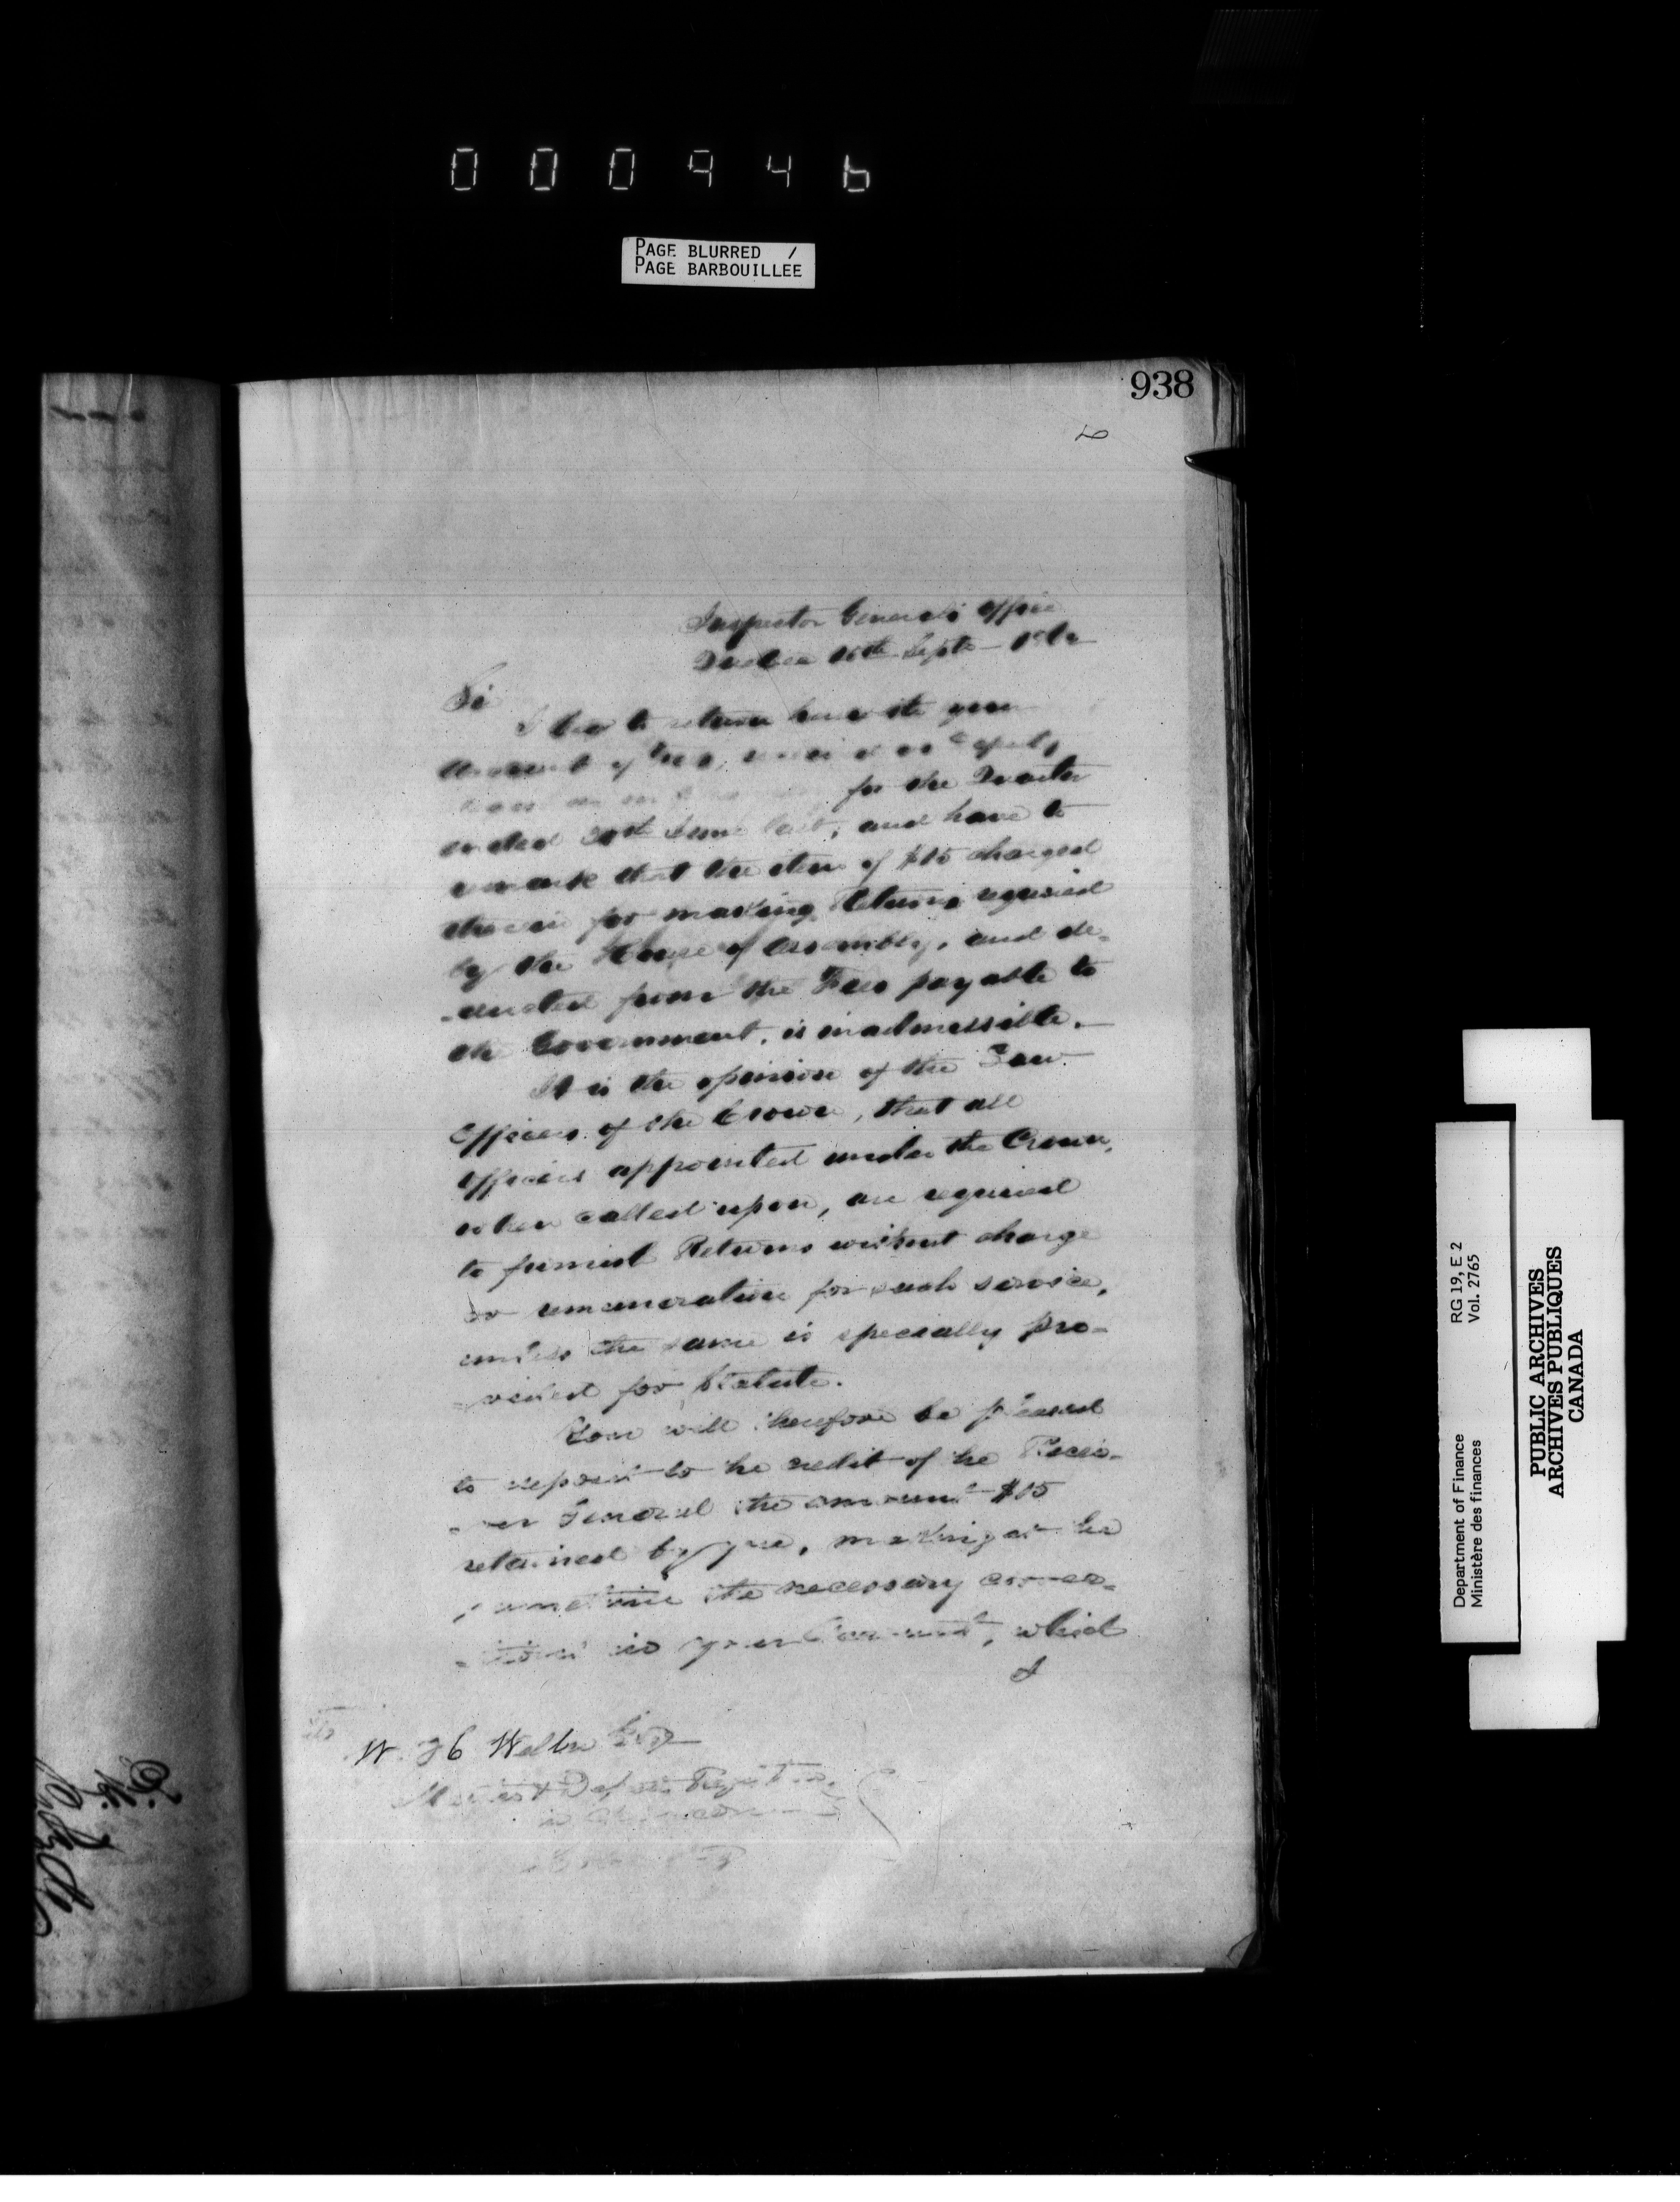 000946
PAGE BLURRED /
PAGE BARBOUILLEE
938
Inspector General's Office
Quebec 16th Sept
Sir
I beg to return herewith your
account of Fees, received as Deputy
for the Quarter
ended 30th June last, and have to
remark that the item of $15 charged
therein for making Returns required
by the House of Assembly, and de-
-ducted from the Fees payable to
the Government, is inadmissible.
It is the opinion of the Law
Officers of the Crown, that all
Officers appointed under the Crown,
when called upon, are required
to furnish Returns without charge
or remuneration for such service,
unless the same is specially pro-
-vided for Statute.
You will therefore be pleased
to deposit to the credit of the Recei-
-ver General the amount $15
retained by you, making at the
same time the necessary correc-
-tions in your Account, which
I
W. Esq
Department of Finance RG 19, E 2
Ministère des finances Vol. 2765
PUBLIC ARCHIVES
ARCHIVES PUBLIQUES
CANADA